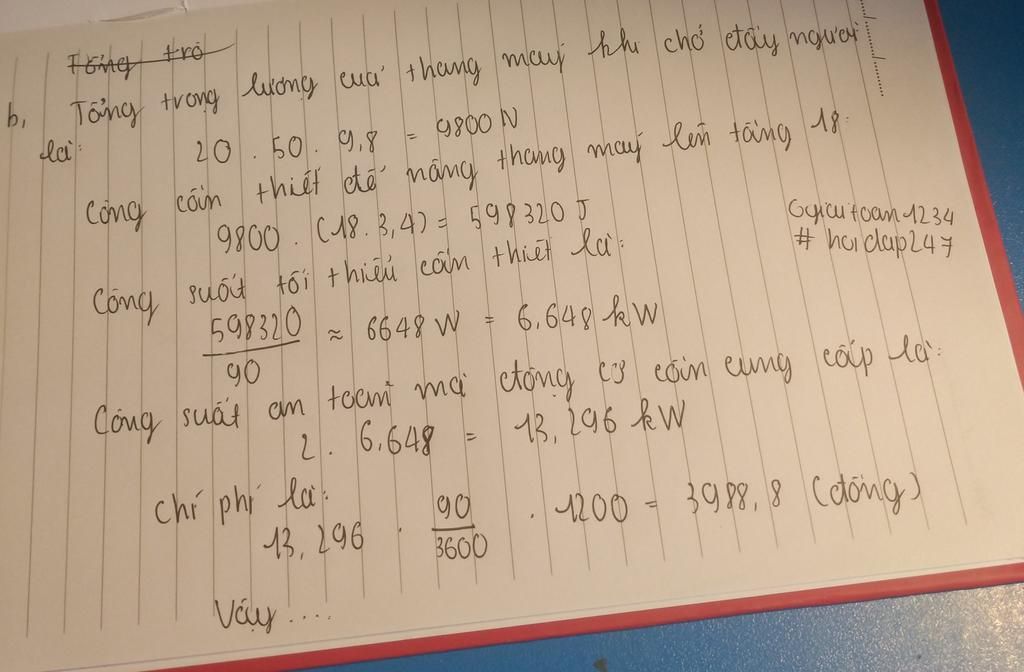 Tổng trọ
b, Tổng trọng lượng của thang máy khi chở đầy người
là:
20 . 50 . 9,8 = 9800 N
Công cần thiết để nâng thang máy lên tầng 18:
9800 . (18 . 3,4) = 598320 J
Công suất tối thiểu cần thiết là:
598320 / 90 ≈ 6648 W = 6,648 kW
Công suất an toàn mà động cơ cần cung cấp là:
2 . 6,648 = 13,296 kW
Chí phí là:
13,296 . 90 / 3600 . 1200 = 3988,8 (đồng)
Vậy ....
Ggicutoan1234
# hoidap247